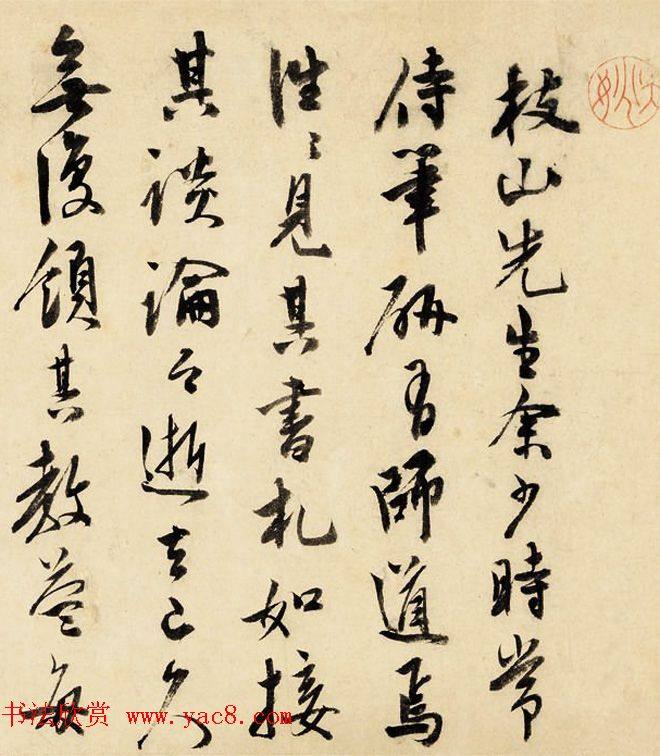 枝山先生余少時常
侍筆研有師道焉
往〻見其書札如接
其談論今逝去已久
無復領其教益每
书法欣赏 www.yac8.com